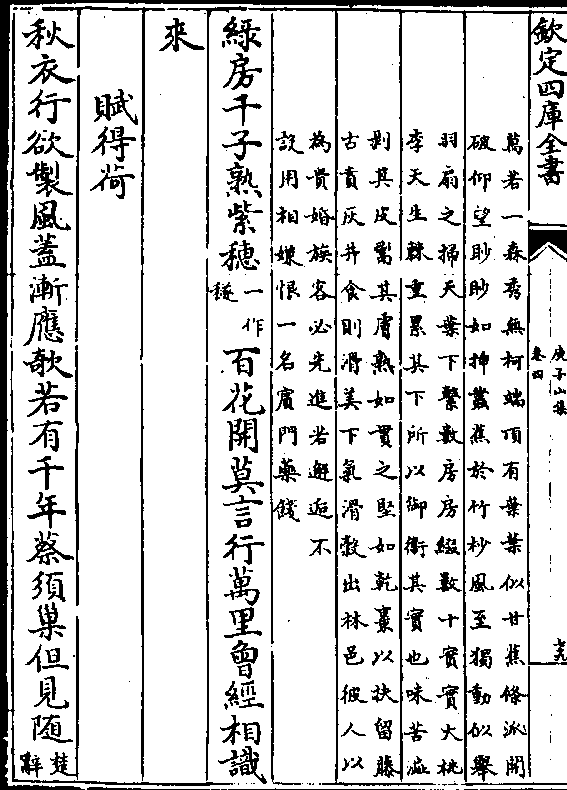 欽定四庫全書
庾子山集
卷四
萬若一森秀無柯端頂有葉葉似甘蕉條派開
破仰望眇眇如挿叢蕉於竹杪風至獨動似舉
羽扇之掃天葉下繫數房房綴數十實實大桃
李天生棘重累其下所以御衛其實也味苦澁
剥其皮鬻其膚熟如貫之堅如乾棗以扶留藤
古賁灰并食則滑美下氣滑穀出林邑彼人以
為貴婚族客必先進若邂逅不
設用相嫌恨一名賔門藥餞
綠房千子熟紫穗一作穟百花開莫言行萬里曾經相識
來
賦得荷
秋衣行欲製風蓋漸應欹若有千年蔡須巢但見隨楚辭